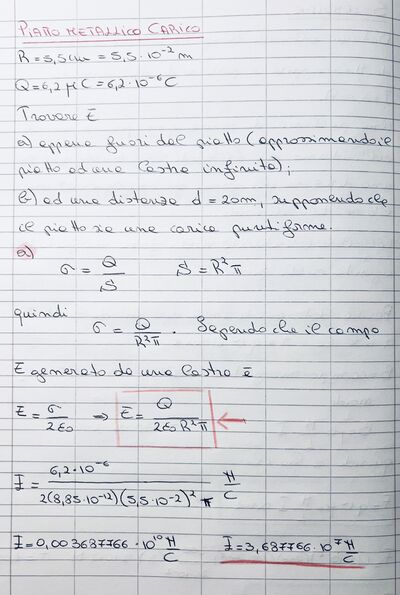 PIATTO METALLICO CARICO
R = 5,5 cm = 5,5 · 10⁻² m
Q = 6,2 μC = 6,2 · 10⁻⁶ C
Trovare E
a) appena fuori dal piatto (approssimando il
piatto ad una lastra infinita);
b) ad una distanza d = 20m, supponendo che
il piatto sia una carica puntiforme.
a)
σ = Q/S S = R²π
quindi
σ = Q/R²π . Sapendo che il campo
E generato da una lastra è
E = σ/2ε₀ → E = Q/2ε₀R²π
E = 6,2 · 10⁻⁶/2(8,85·10⁻¹²)(5,5·10⁻²)²π N/C
E = 0,003687766 · 10¹⁰ N/C E = 3,687766 · 10⁷ N/C